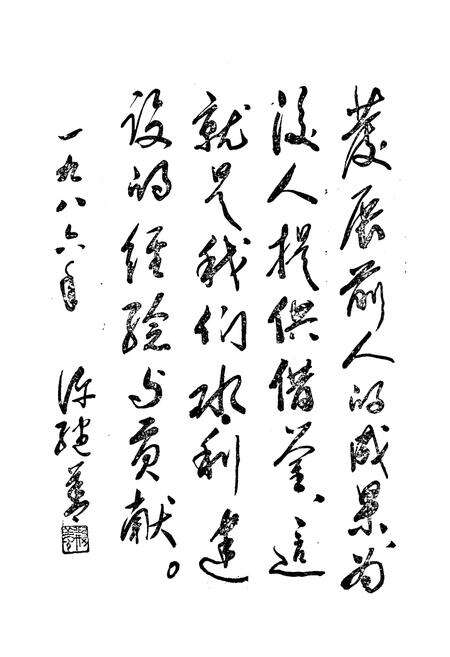 发展前人的成果为
后人提供借鉴、这
就是我们水利建
设的经验与贡献。
一九八六年
许继善